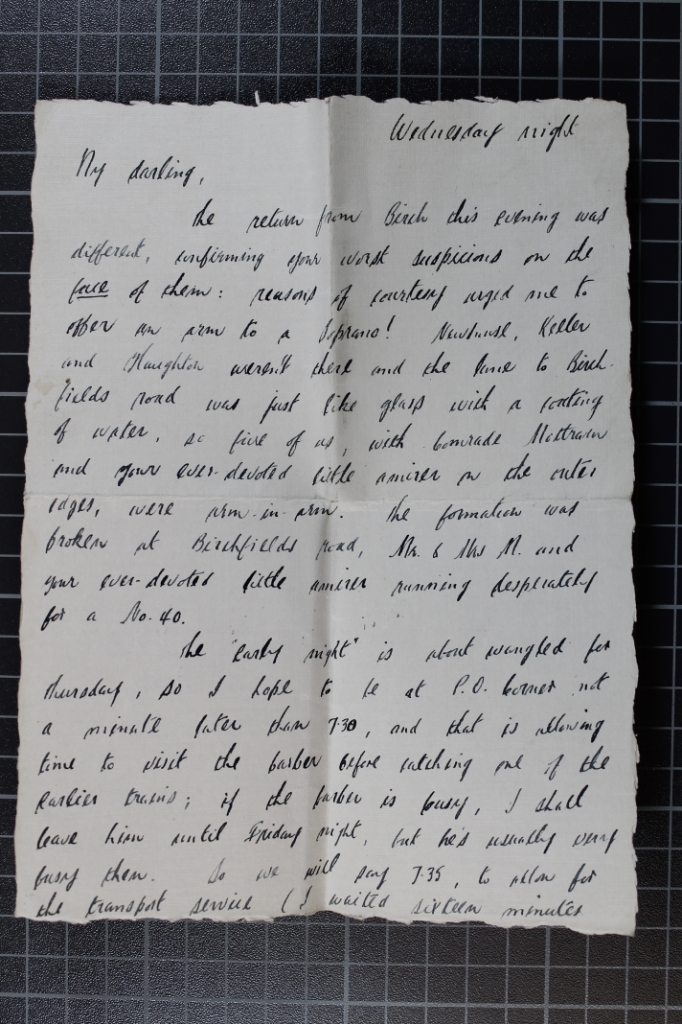 Wednesday night
My darling,
The return from Birch this evening was
different, confirming your worst suspicions on the
face of them: reasons of courtesy urged me to
offer an arm to a Soprano! Newhouse, Keller
and Haughton weren't there and the lane to Birch-
fields road was just like glass with a coating
of water, so five of us, with Comrade Mottram
and your ever-devoted little amirer on the outer
edges, were arm-in-arm. The formation was
broken at Birchfields road, Mr. & Mrs M. and
your ever-devoted little amirer running desperately
for a No. 40.
The "early night" is about wangled for
Thursday, so I hope to be at P.O. Corner not
a minute later than 7.30, and that is allowing
time to visit the barber before catching one of the
earlier trains; if the barber is busy, I shall
leave him until Friday night, but he's usually very
busy then. So we will say 7.35, to allow for
the transport service (I waited sixteen minutes